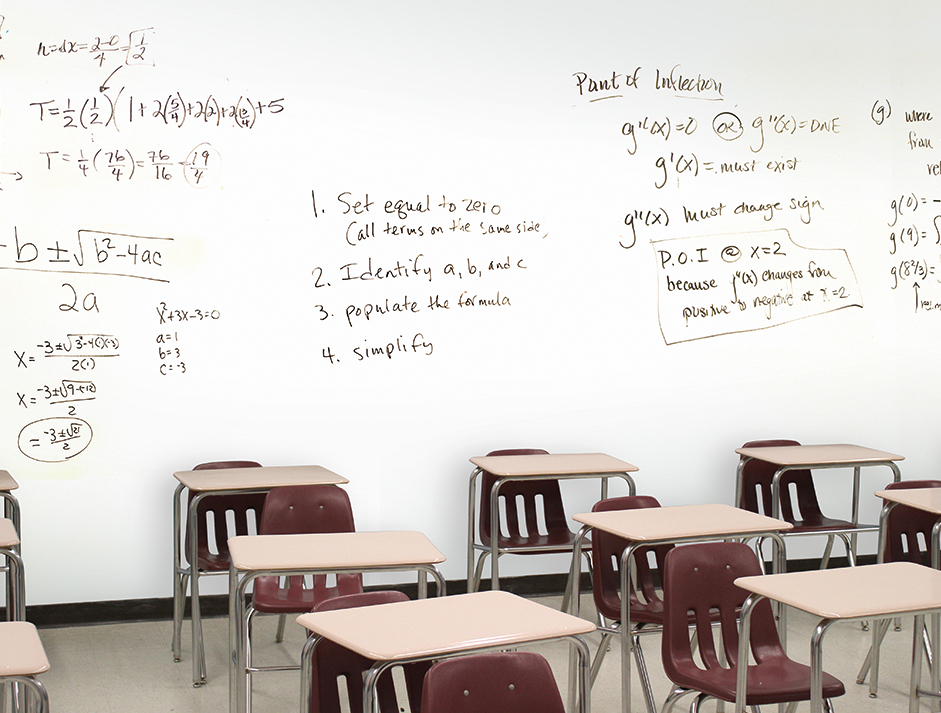 h=dx=2-0/4=√1/2
T=1/2(1/2)(1+2(5/4)+2(2)+2(13/4)+5
T=1/4(76/4)=76/16=19/4
-b±√b²-4ac
2a
x²+3x-3=0
a=1
b=3
c=-3
X=-3±√3²-4(1)(-3)/2(1)
X=-3±√9+12/2
=-3±√21/2
1. Set equal to zero
(all terms on the same side,
2. Identify a, b, and c
3. populate the formula
4. simplify
Point of Inflection
g''(x)=0 OR g''(x)=DNE
g'(x)=must exist
g''(x) must change sign
P.O.I @ x=2
because g''(x) changes from
positive to negative at x=2.
(g) where
from
rel
g(0)=-
g(9)=∫
g(8 2/3)=